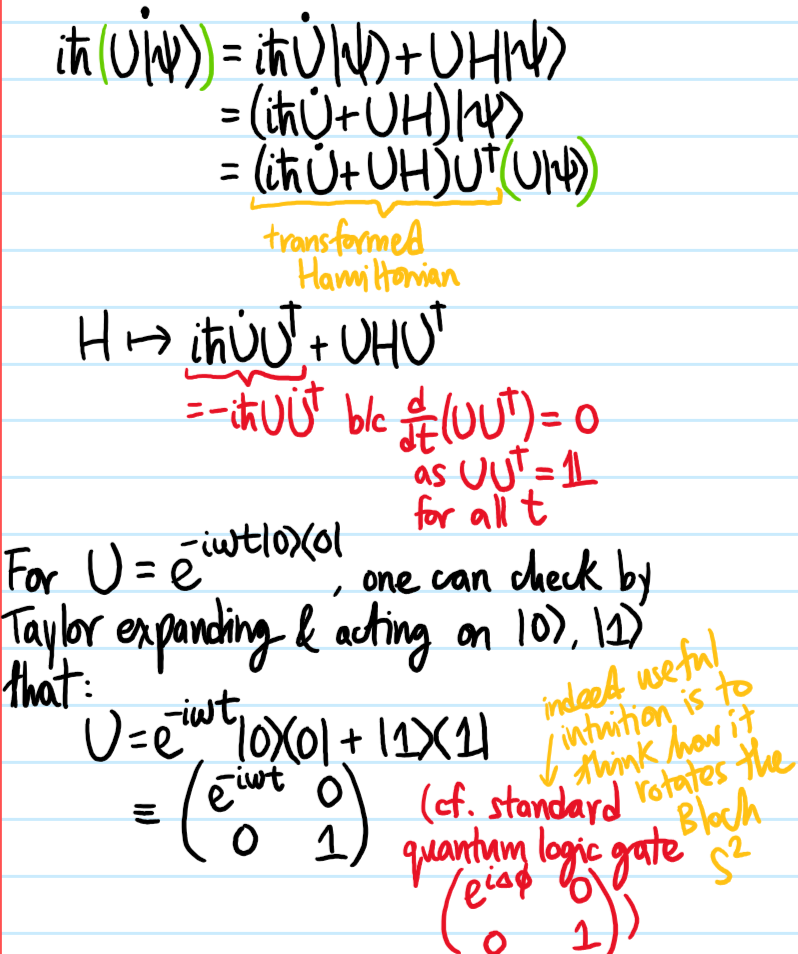 iħ(U̇|ψ⟩) = iħU̇|ψ⟩ + UH|ψ⟩
= (iħU̇ + UH)|ψ⟩
= (iħU̇ + UH)U†(U|ψ⟩)
transformed
Hamiltonian
H ↦ iħU̇U† + UHU†
= -iħUU̇† b/c d/dt(UU†) = 0
as UU† = 𝟙
for all t
For U = e^{-iωt|0⟩⟨0|}, one can check by
Taylor expanding & acting on |0⟩, |1⟩
that:
U = e^{-iωt}|0⟩⟨0| + |1⟩⟨1|
≡ ( e^{-iωt} 0
0 1 )
indeed useful
intuition is to
think how it
rotates the
Bloch
S²
(cf. standard
quantum logic gate
( e^{iΔφ} 0
0 1 ))